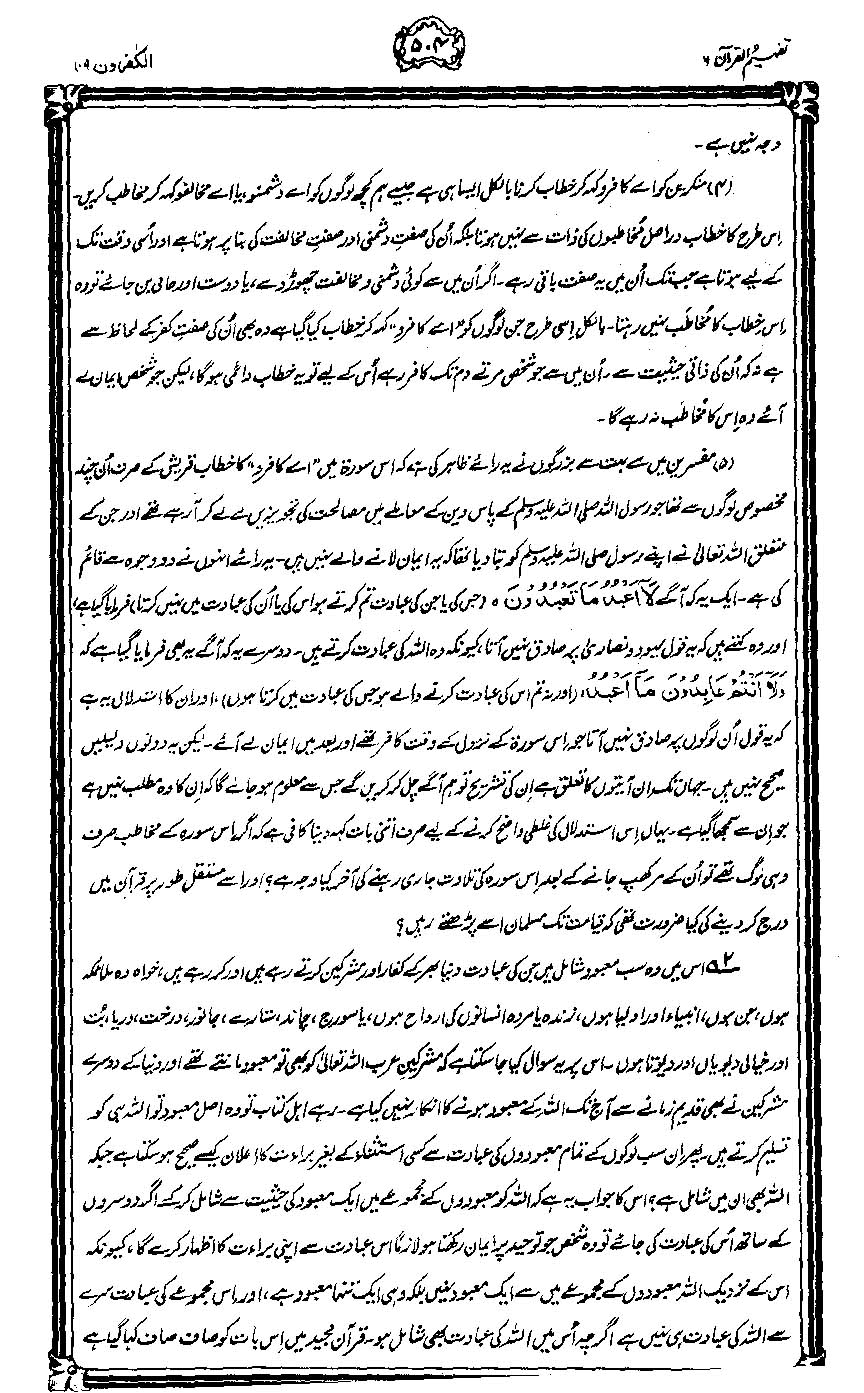 تفہیم القرآن ۶
۵۰۴
الکٰفرون ۱۰۹
وجہ نہیں ہے۔
(۴) منکرین کو اے کافرو کہہ کر خطاب کرنا بالکل ایسا ہی ہے جیسے ہم کچھ لوگوں کو اے دشمنو یا اے مخالفو کہہ کر مخاطب کریں۔
اِس طرح کا خطاب دراصل مُخاطبوں کی ذات سے نہیں ہوتا بلکہ اُن کی صفتِ دشمنی اور صفتِ مخالفت کی بنا پر ہوتا ہے اور اُسی وقت تک
کے لیے ہوتا ہے جب تک اُن میں یہ صفت باقی رہے۔ اگر اُن میں سے کوئی دشمنی و مخالفت چھوڑ دے، یا دوست اور حامی بن جائے تو وہ
اِس خطاب کا مُخاطَب نہیں رہتا۔ بالکل اِسی طرح جن لوگوں کو "اے کافرو" کہہ کر خطاب کیا گیا ہے وہ بھی اُن کی صفتِ کفر کے لحاظ سے
ہے نہ کہ اُن کی ذاتی حیثیت سے۔ اُن میں سے جو شخص مرتے دم تک کافر رہے اُس کے لیے تو یہ خطاب دائمی ہوگا، لیکن جو شخص ایمان لے
آئے وہ اِس کا مخاطَب نہ رہے گا۔
(۵) مفسرین میں سے بہت سے بزرگوں نے یہ رائے ظاہر کی ہے کہ اس سورۃ میں "اے کافرو" کا خطاب قریش کے صرف اُن چند
مخصوص لوگوں سے تھا جو رسول اللہ صلی اللہ علیہ وسلم کے پاس دین کے معاملے میں مصالحت کی تجویزیں لے لے کر آرہے تھے اور جن کے
متعلق اللہ تعالیٰ نے اپنے رسول صلی اللہ علیہ وسلم کو بتا دیا تھا کہ یہ ایمان لانے والے نہیں ہیں۔ یہ رائے انہوں نے دو وجوہ سے قائم
کی ہے۔ ایک یہ کہ آگے لَآ اَعْبُدُ مَا تَعْبُدُوْنَ ہ (جس کی یا جن کی عبادت تم کرتے ہو اس کی یا اُن کی عبادت میں نہیں کرتا) فرمایا گیا ہے،
اور وہ کہتے ہیں کہ یہ قول یہود و نصاریٰ پر صادق نہیں آتا، کیونکہ وہ اللہ کی عبادت کرتے ہیں۔ دوسرے یہ کہ آگے یہ بھی فرمایا گیا ہے کہ
وَلَآ اَنْتُمْ عَابِدُوْنَ مَآ اَعْبُدُ، (اور نہ تم اس کی عبادت کرنے والے ہو جس کی عبادت میں کرتا ہوں)، اور ان کا استدلال یہ ہے
کہ یہ قول اُن لوگوں پر صادق نہیں آتا جو اِس سورۃ کے نزول کے وقت کافر تھے اور بعد میں ایمان لے آئے۔ لیکن یہ دونوں دلیلیں
صحیح نہیں ہیں۔ جہاں تک ان آیتوں کا تعلق ہے اِن کی تشریح تو ہم آگے چل کر کریں گے جس سے معلوم ہو جائے گا کہ اِن کا وہ مطلب نہیں ہے
جو ان سے سمجھا گیا ہے۔ یہاں اِس استدلال کی غلطی واضح کرنے کے لیے صرف اتنی بات کہہ دینا کافی ہے کہ اگر اس سورہ کے مخاطب صرف
وہی لوگ تھے تو اُن کے مرکھپ جانے کے بعد اِس سورہ کی تلاوت جاری رہنے کی آخر کیا وجہ ہے؟ اور اسے مستقل طور پر قرآن میں
درج کر دینے کی کیا ضرورت تھی کہ قیامت تک مسلمان اسے پڑھتے رہیں؟
۲ اس میں وہ سب معبود شامل ہیں جن کی عبادت دنیا بھر کے کفار اور مشرکین کرتے رہے ہیں اور کر رہے ہیں، خواہ وہ ملائکہ
ہوں، جن ہوں، انبیاء اور اولیا ہوں، زندہ یا مردہ انسانوں کی ارواح ہوں، یا سورج، چاند، ستارے، جانور، درخت، دریا، بُت
اور خیالی دیویاں اور دیوتا ہوں۔ اس پر یہ سوال کیا جاسکتا ہے کہ مشرکینِ عرب اللہ تعالیٰ کو بھی تو معبود مانتے تھے اور دنیا کے دوسرے
مشرکین نے بھی قدیم زمانے سے آج تک اللہ کے معبود ہونے کا انکار نہیں کیا ہے۔ رہے اہل کتاب تو وہ اصل معبود تو اللہ ہی کو
تسلیم کرتے ہیں۔ پھر ان سب لوگوں کے تمام معبودوں کی عبادت سے کسی استثناء کے بغیر براءت کا اعلان کیسے صحیح ہو سکتا ہے جبکہ
اللہ بھی ان میں شامل ہے؟ اس کا جواب یہ ہے کہ اللہ کو معبودوں کے مجموعے میں ایک معبود کی حیثیت سے شامل کر کے اگر دوسروں
کے ساتھ اُس کی عبادت کی جائے تو وہ شخص جو توحید پر ایمان رکھتا ہو لازماً اس عبادت سے اپنی براءت کا اظہار کرے گا، کیونکہ
اس کے نزدیک اللہ معبودوں کے مجموعے میں سے ایک معبود نہیں بلکہ وہی ایک تنہا معبود ہے، اور اِس مجموعے کی عبادت سرے
سے اللہ کی عبادت ہی نہیں ہے اگرچہ اُس میں اللہ کی عبادت بھی شامل ہو۔ قرآن مجید میں اِس بات کو صاف صاف کہا گیا ہے